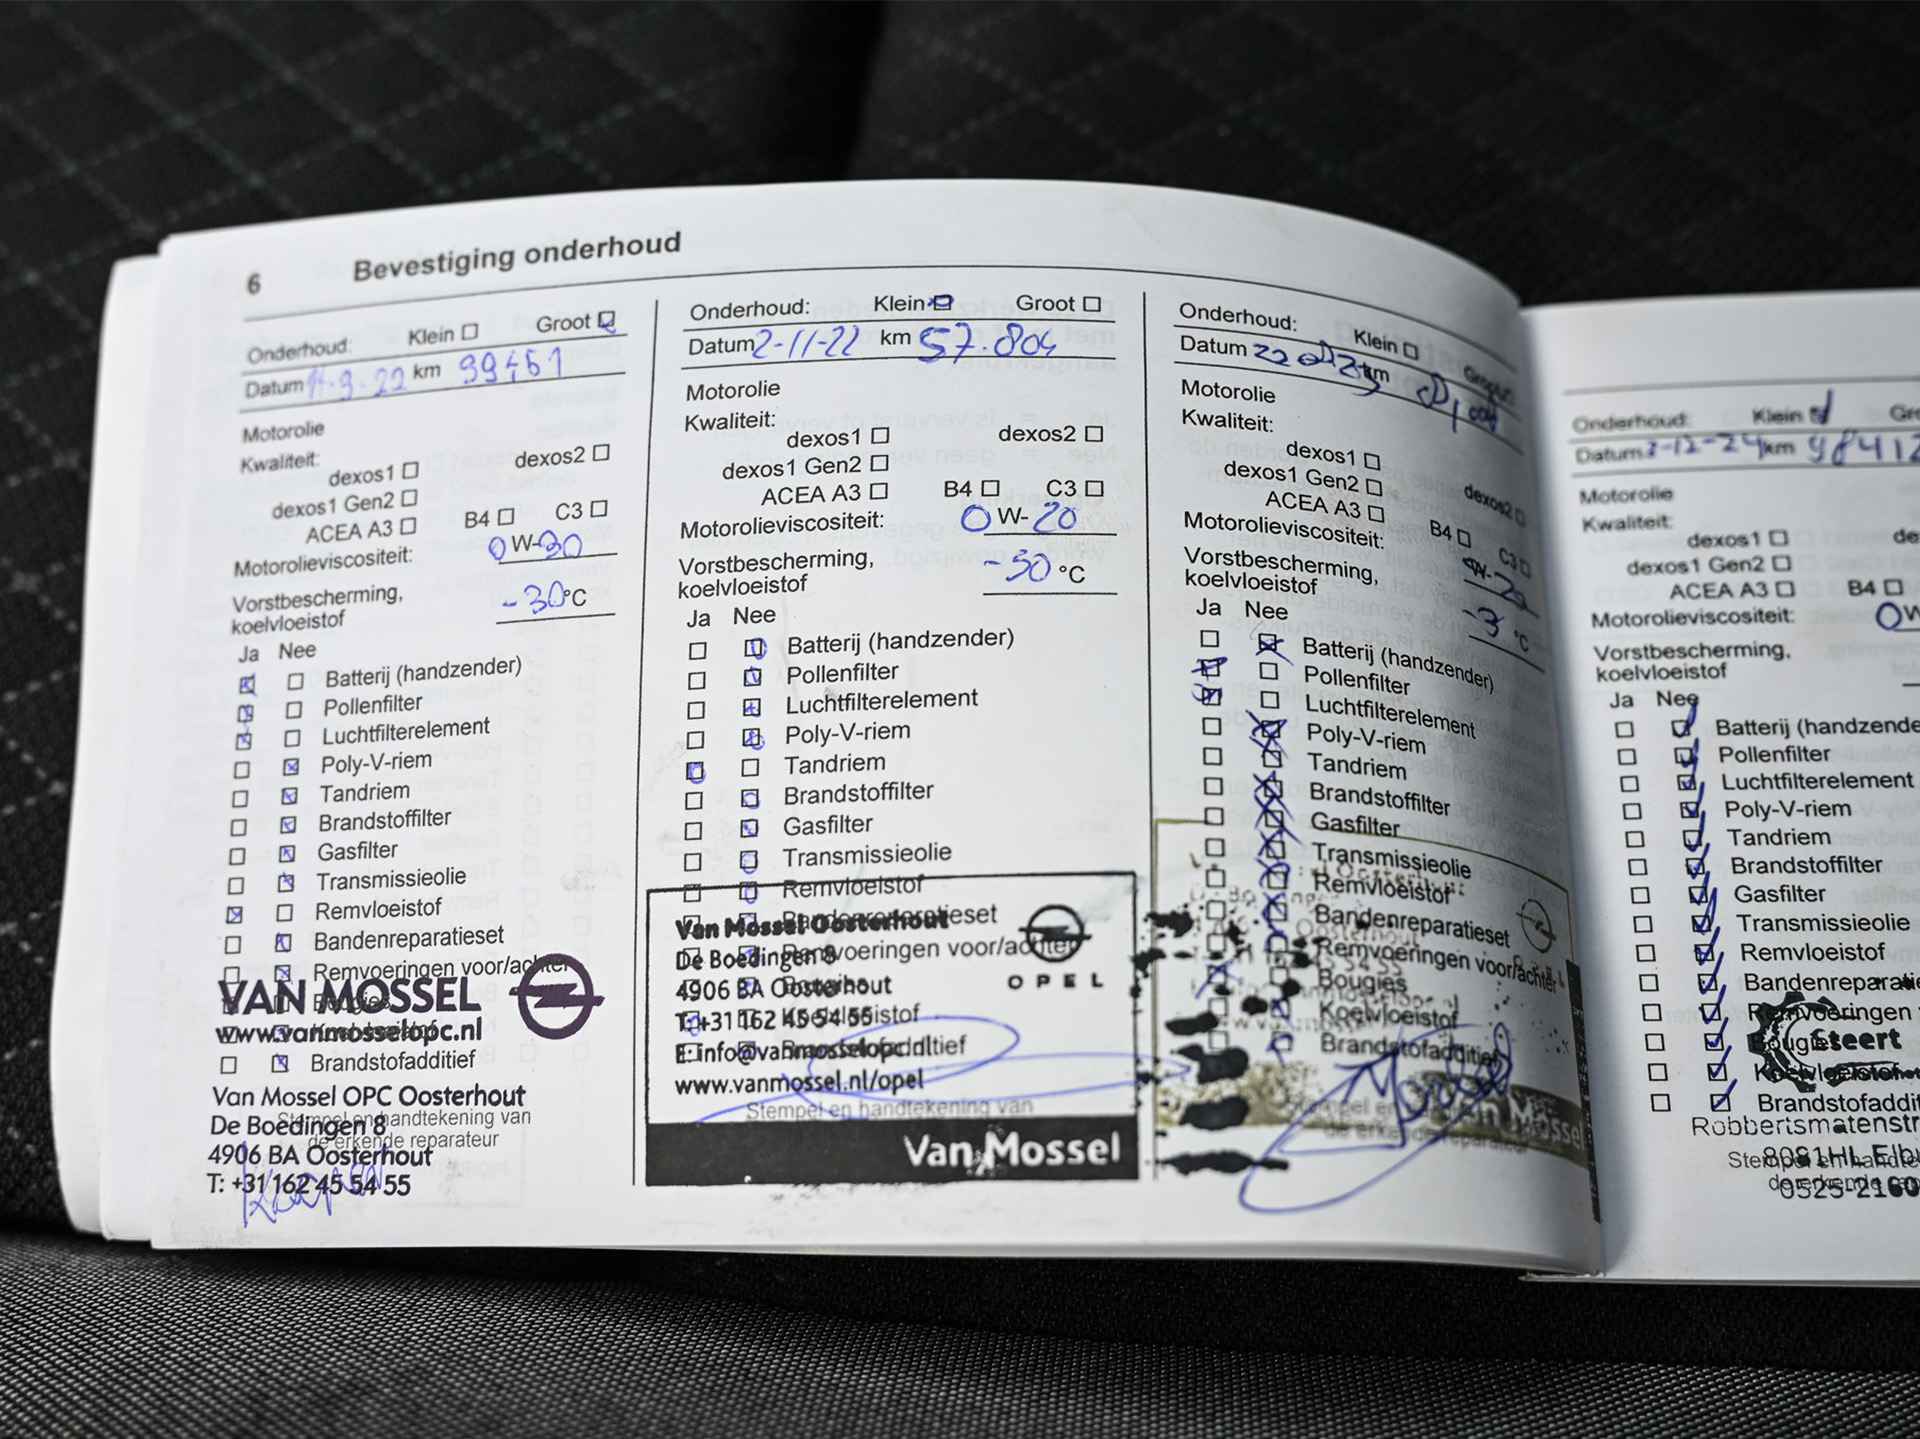 6 Bevestiging onderhoud
Onderhoud: Klein Groot
Datum km
Motorolie
Kwaliteit:
dexos1 dexos2
dexos1 Gen2
ACEA A3 B4 C3
Motorolieviscositeit: 0 W-30
Vorstbescherming,
koelvloeistof -30 °C
Ja Nee
Batterij (handzender)
Pollenfilter
Luchtfilterelement
Poly-V-riem
Tandriem
Brandstoffilter
Gasfilter
Transmissieolie
Remvloeistof
Bandenreparatieset
Remvoeringen voor/achter
VAN MOSSEL
Bougies
www.vanmosselopc.nl
Brandstofadditief
Van Mossel OPC Oosterhout
Stempel en handtekening van
De Boedingen 8
de erkende reparateur
4906 BA Oosterhout
T: +31 162 45 54 55
Onderhoud: Klein Groot
Datum 2-11-22 km 57.804
Motorolie
Kwaliteit:
dexos1 dexos2
dexos1 Gen2
ACEA A3 B4 C3
Motorolieviscositeit: 0 W-20
Vorstbescherming,
koelvloeistof °C
Ja Nee
Batterij (handzender)
Pollenfilter
Luchtfilterelement
Poly-V-riem
Tandriem
Brandstoffilter
Gasfilter
Transmissieolie
Remvloeistof
Bandenreparatieset
Van Mossel Oosterhout
Remvoeringen voor/achter
De Boedingen 8
OPEL
4906 BA Oosterhout
Koelvloeistof
T: +31 162 45 54 55
Brandstofadditief
E: info@vanmosselopc.nl
www.vanmossel.nl/opel
Stempel en handtekening van
Van Mossel
Onderhoud: Klein
Datum km
Motorolie
Kwaliteit:
dexos1 dexos2
dexos1 Gen2
ACEA A3 B4 C3
Motorolieviscositeit:
Vorstbescherming,
koelvloeistof °C
Ja Nee
Batterij (handzender)
Pollenfilter
Luchtfilterelement
Poly-V-riem
Tandriem
Brandstoffilter
Gasfilter
Transmissieolie
Remvloeistof
Bandenreparatieset
Remvoeringen voor/achter
Bougies
Koelvloeistof
Brandstofadditief
Mossel
de erkende reparateur
Onderhoud: Klein
Datum km
Motorolie
Kwaliteit:
dexos1
dexos1 Gen2
ACEA A3 B4
Motorolieviscositeit: 0 W
Vorstbescherming,
koelvloeistof
Ja Nee
Batterij (handzende
Pollenfilter
Luchtfilterelement
Poly-V-riem
Tandriem
Brandstoffilter
Gasfilter
Transmissieolie
Remvloeistof
Bandenreparatie
Remvoeringen
Bougies
Steert
Koelvloeistof
Brandstofaddit
Robbertsmatenstr
8081HL Elbu
0525-2160